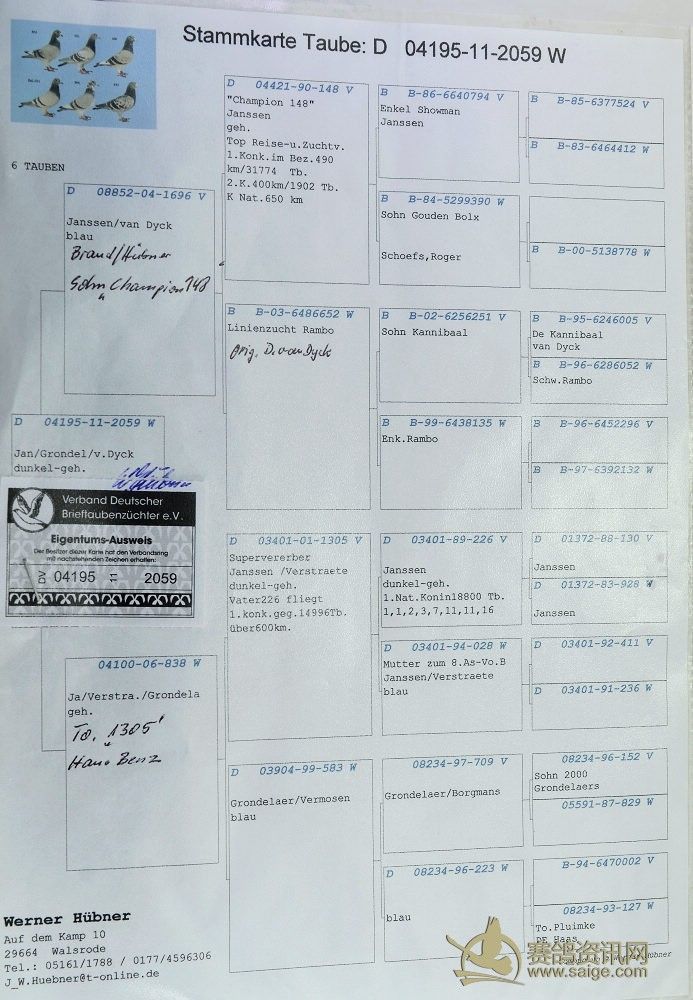 Stammkarte Taube: D 04195-11-2059 W
6 TAUBEN
D 08852-04-1696 V
Janssen/van Dyck
blau
Brand/Hübner
Sohn "Champion 148
D 04195-11-2059 W
Jan/Grondel/v.Dyck
dunkel-geh.
Verband Deutscher
Brieftaubenzüchter e.V.
Eigentums-Ausweis
Der Besitzer dieser Karte hat den Verbandsring
mit nachstehenden Zeichen erhalten:
DV 04195 11 2059
04100-06-838 W
Ja/Verstra./Grondela
geh.
To. "1305"
Hans Benz
D 04421-90-148 V
"Champion 148"
Janssen
geh.
Top Reise-u.Zuchtv.
1.Konk.im Bez.490
km/31774 Tb.
2.K.400km/1902 Tb.
K Nat.650 km
B B-03-6486652 W
Linienzucht Rambo
orig. D. van Dyck
D 03401-01-1305 V
Supervererber
Janssen /Verstraete
dunkel-geh.
Vater226 fliegt
1.konk.geg.14996Tb.
über600km.
D 03904-99-583 W
Grondelaer/Vermosen
blau
B B-86-6640794 V
Enkel Showman
Janssen
B B-84-5299390 W
Sohn Gouden Bolx
Schoefs,Roger
B B-02-6256251 V
Sohn Kannibaal
B B-99-6438135 W
Enk.Rambo
D 03401-89-226 V
Janssen
dunkel-geh.
1.Nat.Konin18800 Tb.
1,1,2,3,7,11,11,16
D 03401-94-028 W
Mutter zum 8.As-Vo.B
Janssen/Verstraete
blau
08234-97-709 V
Grondelaer/Borgmans
D 08234-96-223 W
blau
B B-85-6377524 V
B B-83-6464412 W
B B-00-5138778 W
B B-95-6246005 V
De Kannibaal
van Dyck
B B-96-6286052 W
Schw.Rambo
B B-96-6452296 V
B B-97-6392132 W
D 01372-88-130 V
Janssen
D 01372-83-928 W
Janssen
D 03401-92-411 V
D 03401-91-236 W
08234-96-152 V
Sohn 2000
Grondelaers
05591-87-829 W
B-94-6470002 V
08234-93-127 W
To.Pluimke
PE Haas
Hübner
Werner Hübner
Auf dem Kamp 10
29664 Walsrode
Tel.: 05161/1788 / 0177/4596306
J_W.Huebner@t-online.de
赛鸽资讯网
www.saige.com